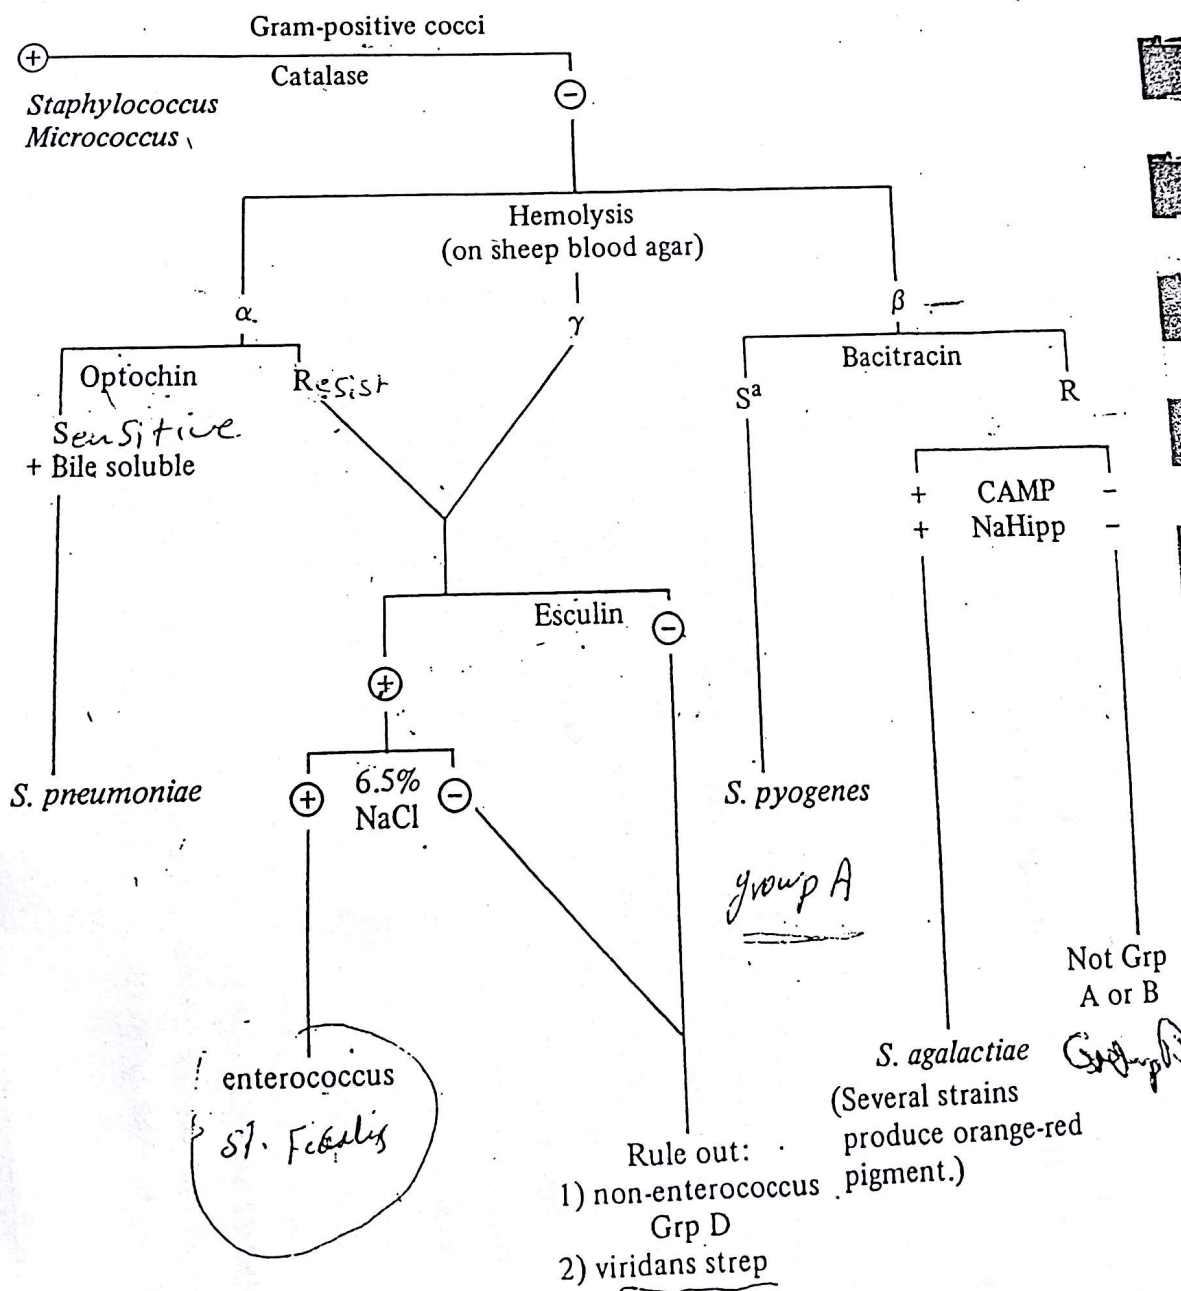 Gram-positive cocci
+
Catalase
−
Staphylococcus
Micrococcus
Hemolysis
(on sheep blood agar)
α
γ
β
Optochin
Resist
Bacitracin
Sensitive
+ Bile soluble
Sª
R
+ CAMP −
+ NaHipp −
Esculin
−
+
S. pneumoniae
+ 6.5% −
NaCl
S. pyogenes
group A
Not Grp
A or B
enterococcus
S. agalactiae
(Several strains
produce orange-red
pigment.)
st. Fecalis
Rule out:
1) non-enterococcus
Grp D
2) viridans strep